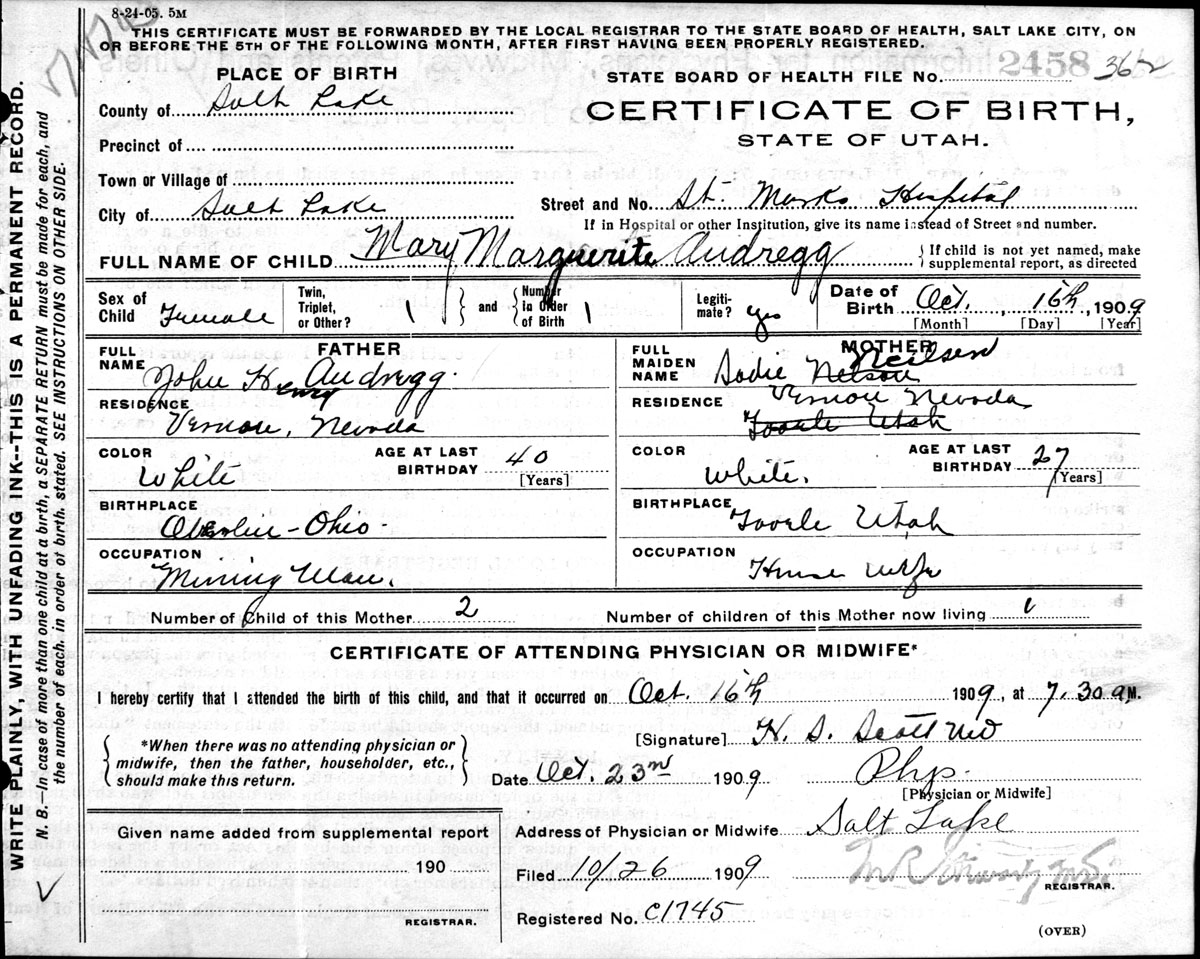 8-24-05. 5M
THIS CERTIFICATE MUST BE FORWARDED BY THE LOCAL REGISTRAR TO THE STATE BOARD OF HEALTH, SALT LAKE CITY, ON
OR BEFORE THE 5TH OF THE FOLLOWING MONTH, AFTER FIRST HAVING BEEN PROPERLY REGISTERED.
PLACE OF BIRTH
County of Salt Lake
Precinct of
Town or Village of
City of Salt Lake
STATE BOARD OF HEALTH FILE No. 2458 362
CERTIFICATE OF BIRTH,
STATE OF UTAH.
Street and No. St. Marks Hospital
If in Hospital or other Institution, give its name instead of Street and number.
FULL NAME OF CHILD Mary Marguerite Andregg
If child is not yet named, make
supplemental report, as directed
Sex of Child Female
Twin, Triplet, or Other? 1
and
Number in Order of Birth 1
Legiti-mate? yes
Date of Birth Oct. 16th, 1909
[Month] [Day] [Year]
FATHER
FULL NAME John Henry Andregg.
RESIDENCE Vernon, Nevada
COLOR White
AGE AT LAST BIRTHDAY 40
[Years]
BIRTHPLACE Oberlin - Ohio.
OCCUPATION Mining Man.
MOTHER
FULL MAIDEN NAME Sadie Nelson Neilsen
RESIDENCE Vernon Nevada
Tooele Utah
COLOR White.
AGE AT LAST BIRTHDAY 27
[Years]
BIRTHPLACE Tooele Utah
OCCUPATION House Wife
Number of Child of this Mother 2
Number of children of this Mother now living 1
CERTIFICATE OF ATTENDING PHYSICIAN OR MIDWIFE*
I hereby certify that I attended the birth of this child, and that it occurred on Oct. 16th 1909, at 7.30 a M.
*When there was no attending physician or
midwife, then the father, householder, etc.,
should make this return.
[Signature] H. S. Scott MD
Date Oct. 23rd 1909
Phys.
[Physician or Midwife]
Given name added from supplemental report
190
REGISTRAR.
Address of Physician or Midwife Salt Lake
Filed 10/26 1909
REGISTRAR.
Registered No. C1745
(OVER)
WRITE PLAINLY, WITH UNFADING INK--THIS IS A PERMANENT RECORD.
N. B.—In case of more than one child at a birth, a SEPARATE RETURN must be made for each, and
the number of each, in order of birth, stated. SEE INSTRUCTIONS ON OTHER SIDE.